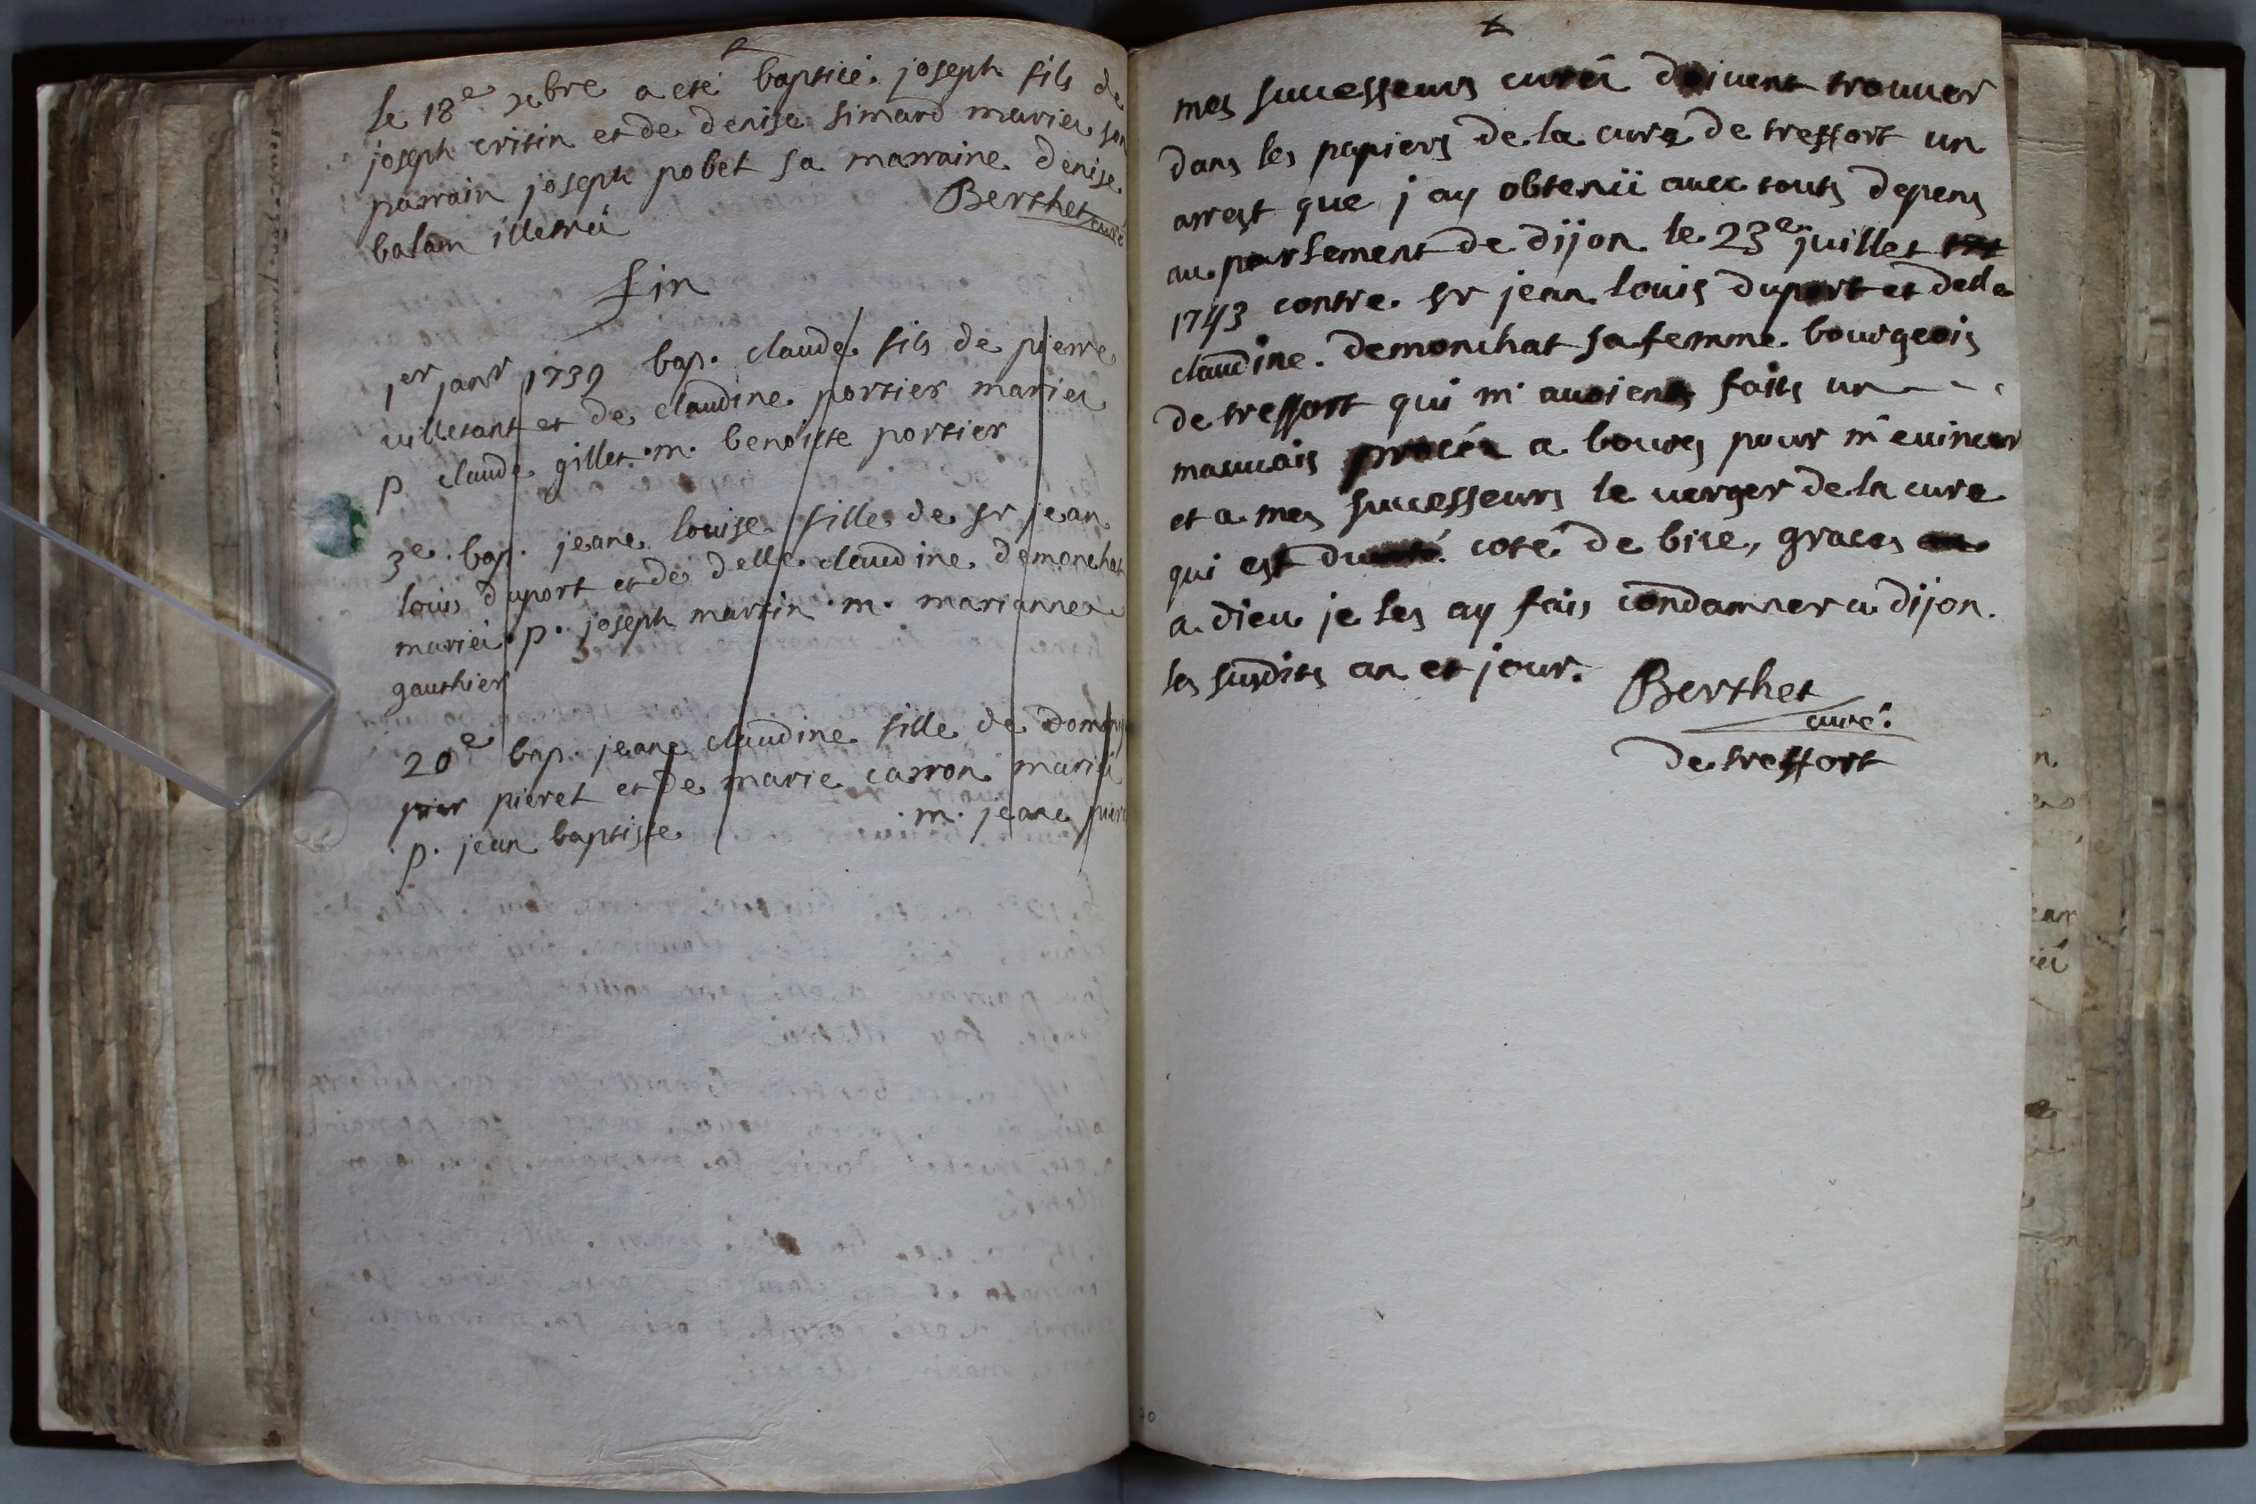 le 18e xbre a eté baptisé joseph fils de
joseph critin et de denise simard mariés son
parrain joseph pobet sa marraine denise
balam illetrés
Berthet curé
fin
1er janr 1739 bap. claude fils de pierre
villetant et de claudine portier mariés
p claude gillet m. benoiste portier
3e. bap. jeane louise fille de sr jean
louis duport et de delle claudine demonchat
mariés p. joseph martin m. marianne
gauthier
20e bap. jeane claudine fille de
pieret et de marie carron mariés
p. jean baptiste . m. jeane
mes successeurs curés doivent trouver
dans les papiers de la cure de treffort un
arrest que j ay obtenü avec touts depens
au parlement de dijon le 23e juillet
1743 contre sr jean louis duport et delle
claudine demonchat sa femme bourgeois
de treffort qui m'avoients faits un - - -
mauvais procés a bourg pour m'evincer
et a mes successeurs le verger de la cure
qui est du coté de bise, graces
a dieu je les ay fais condamner a dijon.
les susdits an et jour.
Berthet
curé.
de treffort
20